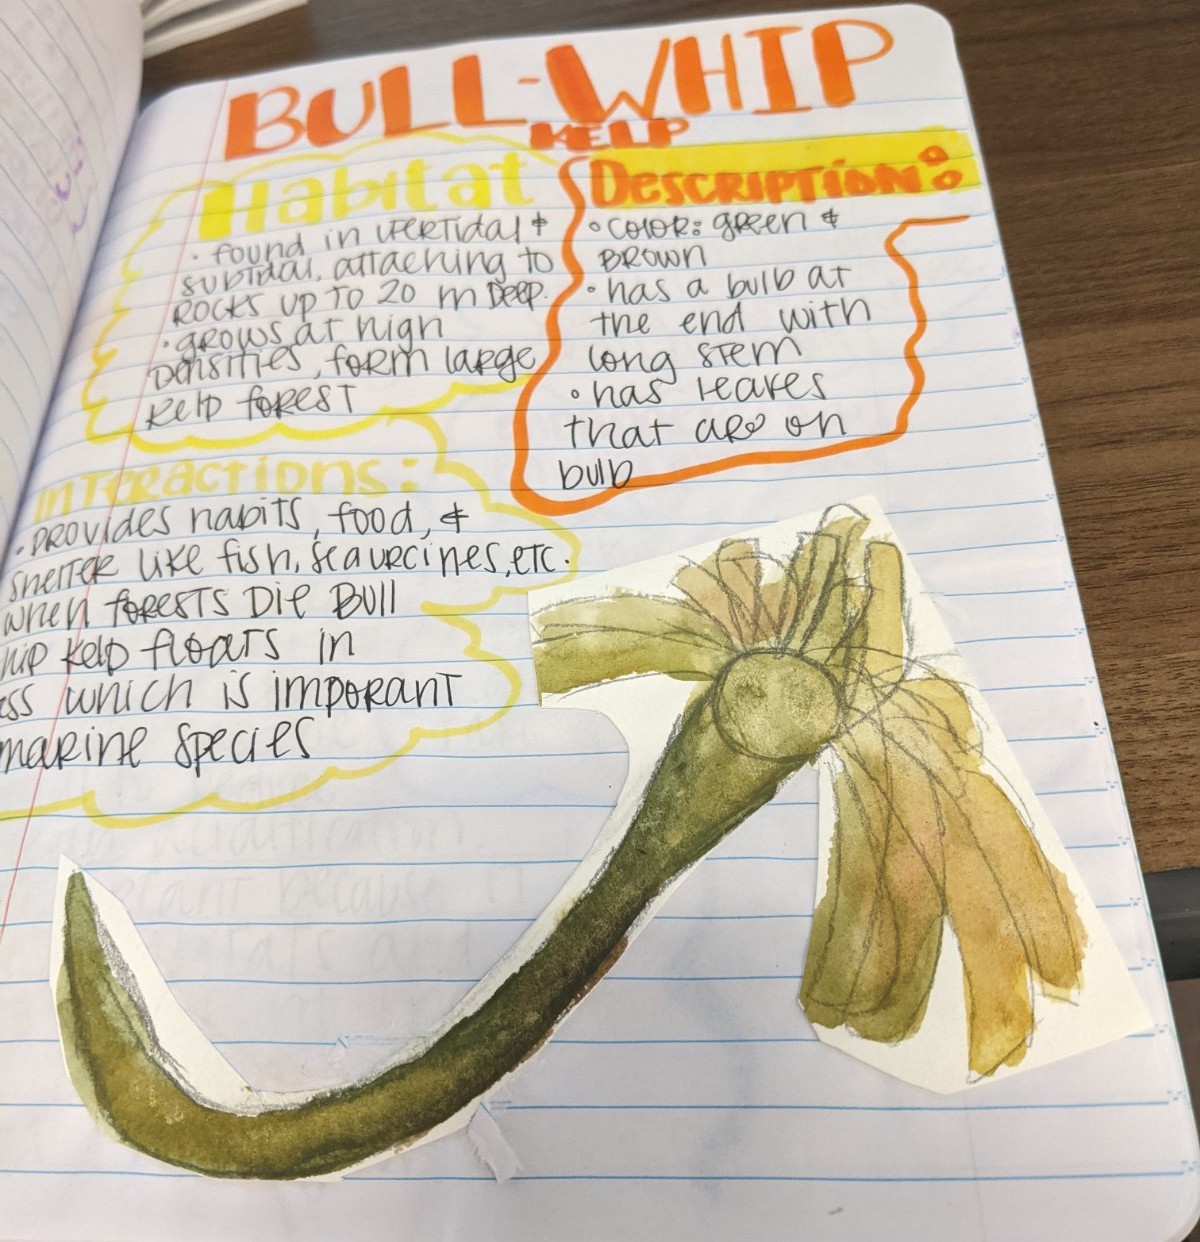 BULL-WHIP
KELP
Habitat
• found in vertidal &
subtidal, attaching to
ROCKS UP TO 20 m Deep.
• grows at high
Densities, form large
Kelp forest
Description:
• color: green &
BROWN
• has a bulb at
the end with
long stem
• has leaves
that are on
bulb
interactions:
• provides habits, food, &
shelter like fish, seaurcines, etc.
when forests Die Bull
hip Kelp floats in
ss which is imporant
marine species